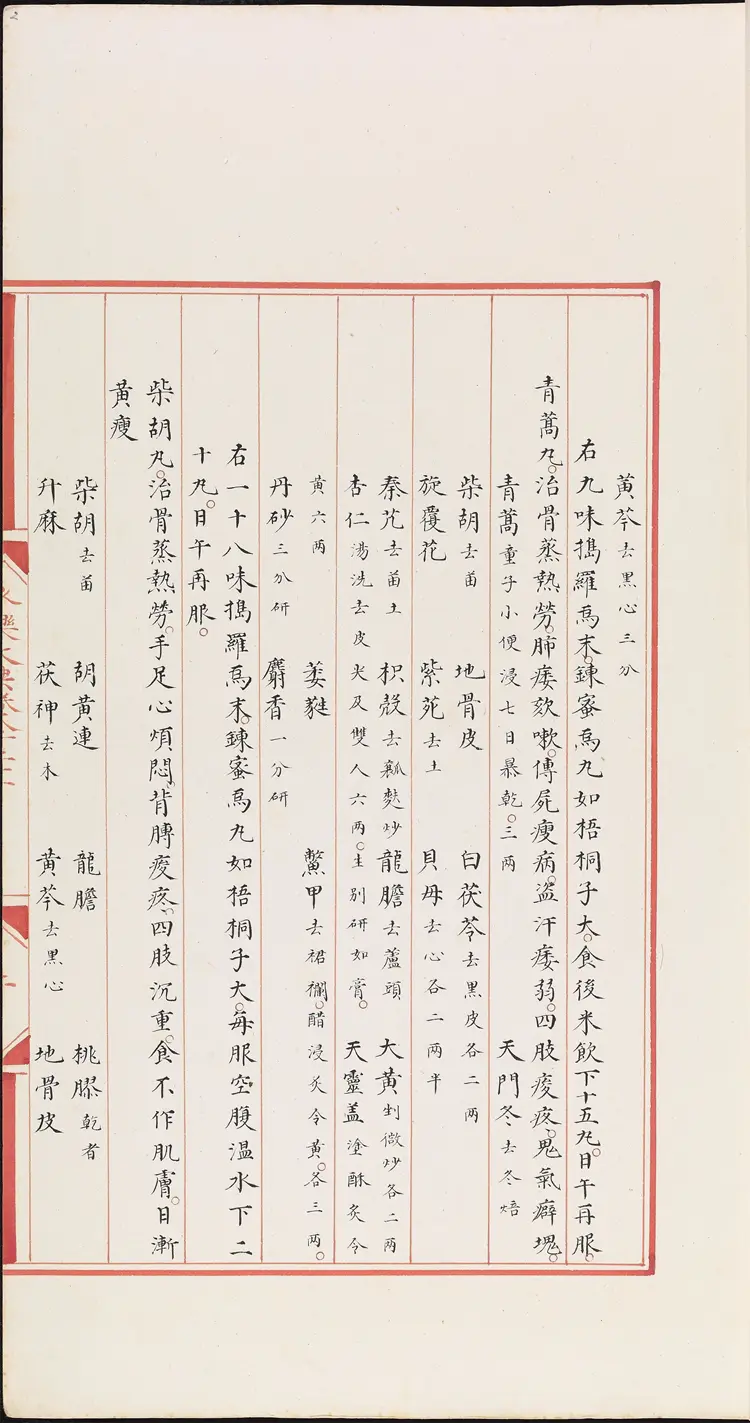 黃芩去黑心三分
右九味搗羅爲末。鍊蜜爲丸如梧桐子大。食後米飲下十五丸。日午再服。
青蒿丸。治骨蒸熱勞。肺痿欬嗽。傳屍瘦病。盜汗痿弱。四肢痠疼。鬼氣癖塊。
青蒿童子小便浸七日暴乾。三兩 天門冬去冬焙
柴胡去苗 地骨皮 白茯苓去黑皮各二兩
旋覆花 紫菀去土 貝母去心各二兩半
秦艽去苗土 枳殼去瓤麩炒 龍膽去蘆頭 大黃剉微炒各二兩
杏仁湯洗去皮尖及雙人六兩。生別研如膏。 天靈蓋塗酥炙令
黃六兩 萎蕤 鱉甲去裙襴。醋浸炙令黃。各三兩。
丹砂三分研 麝香一分研
右一十八味搗羅爲末。鍊蜜爲丸如梧桐子大。每服空腹溫水下二
十丸。日午再服。
柴胡丸。治骨蒸熱勞。手足心煩悶。背膊痠疼。四肢沉重。食不作肌膚。日漸
黃瘦
柴胡去苗 胡黃連 龍膽 桃膠乾者
升麻 茯神去木 黃芩去黑心 地骨皮